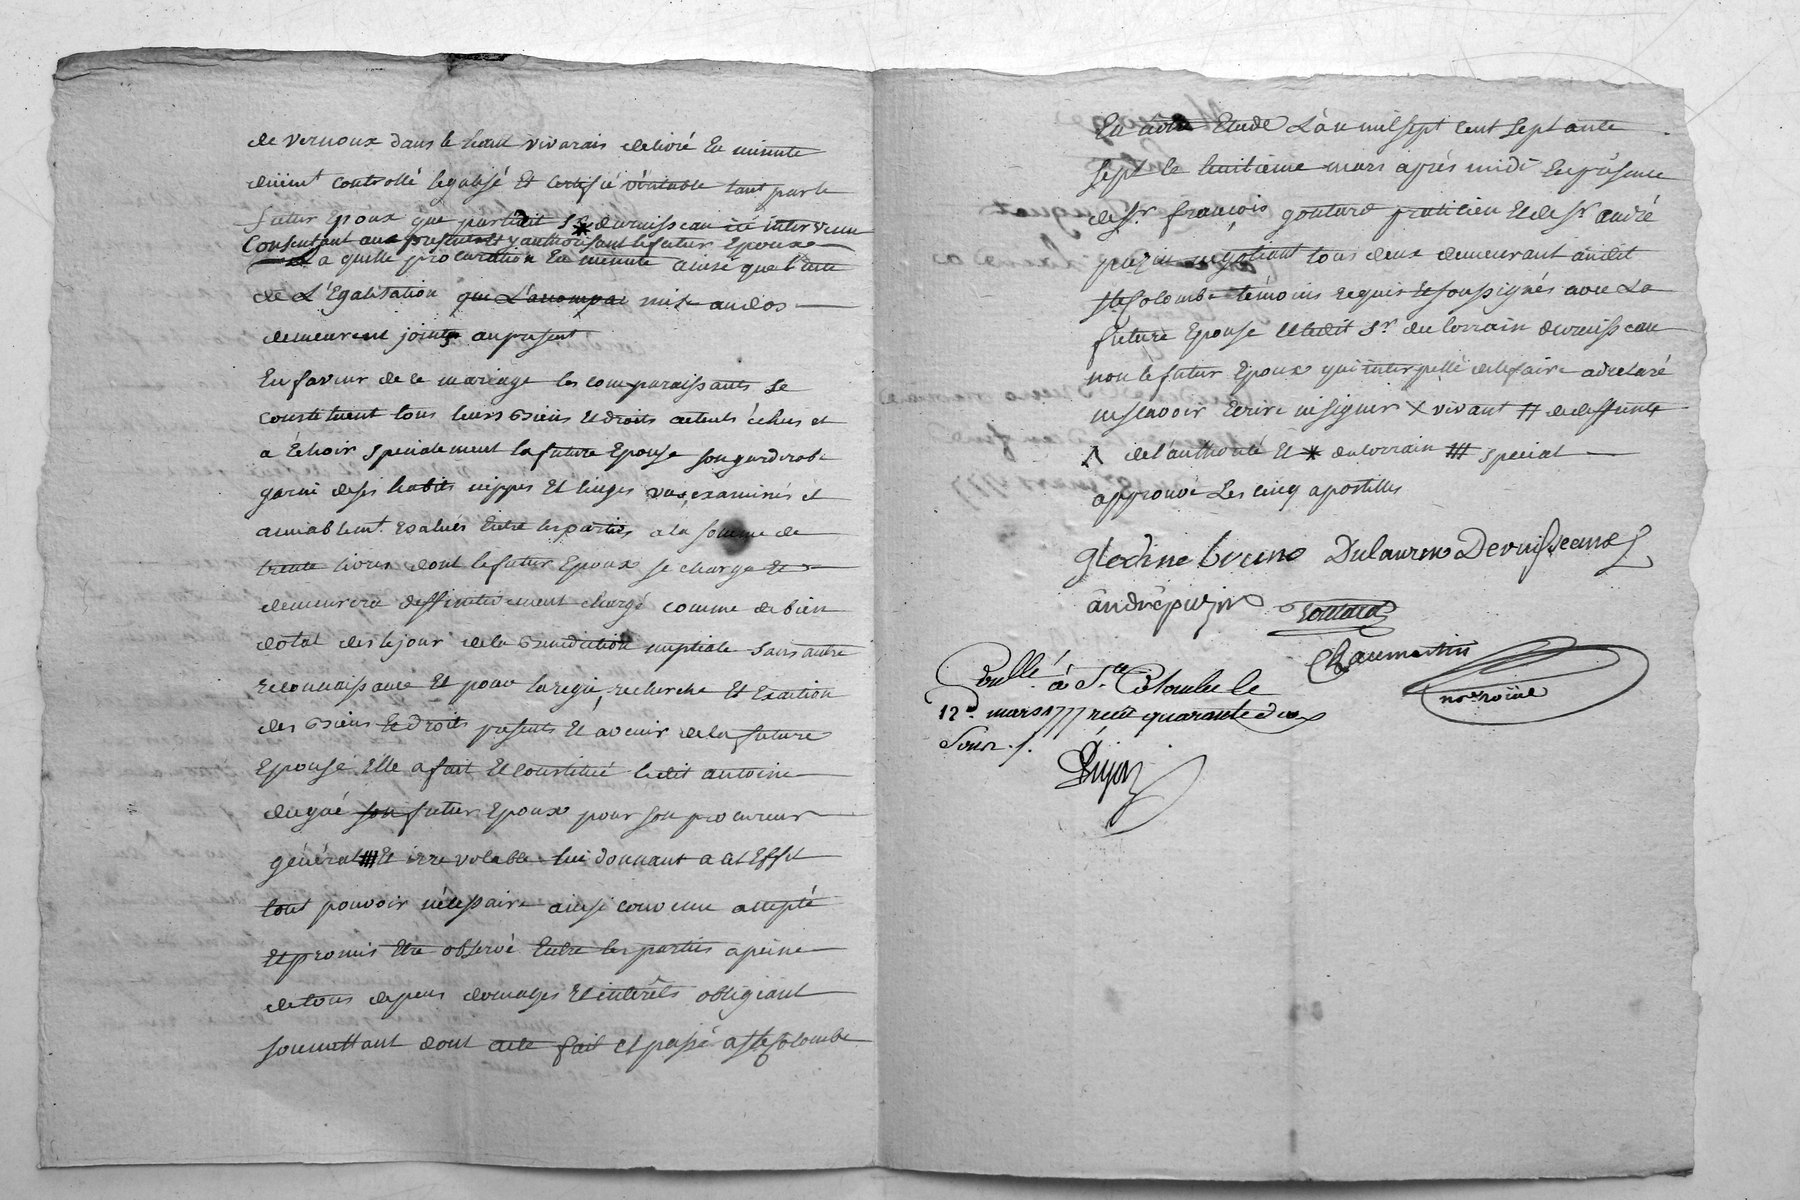 de vernoux dans le haut vivarais delivré En minute
duëmt controllé legalisé Et certifié véritable tant par le
futur Epoux que par ledit Sr * devuisseau icé intervenu
Consentant aux presentes Et y authorisant le futur Epoux
La quelle procuration En minute ainsé que l'acte
de L'Egalisation que L'accompag mise au dos
demeurent joints au present
En faveur de ce mariage les comparaissants se
constituent tous leurs Biens Et droits actuels échus et
a Echoir specialement la future Epouse son garderobe
garni de ses habits nippes Et linges vus examinés et
amiablemt. Evalués Entre les parties a la somme de
trente livres dont le futur Epoux se charge Et
demeurera deffinitivement chargé comme de bien
dotal dès le jour de la Benediction nuptiale sans autre
reconnaissance Et pour la regie, recherche Et Exaction
des Biens Et droits presents Et avenir de la future
Epouse Elle a fait Et constitué ledit antoine
dugué son futur Epoux pour son procureur
général # Et irrevocable lui donnant a cet Effet
tout pouvoir nécessaire ainsi convenu accepté
Et promis Etre observé Entre les parties a peine
de tous depens domages Et intérêts obligeant
soumettant dont acte fait et passé a Ste Colombe
En nôtre Etude L'an mil sept cent septante
sept le huitième mars après midi En présence
de Sr. françois goutard praticien Et de Sr. andré
puzin negotiant tous deux demeurant audit
Ste Colombe témoins requis Et soussignés avec La
future Epouse Et ledit Sr. du lorrain devuisseau
non le futur Epoux qui interpellé de le faire a declaré
ne sçavoir Ecrire ni signer X vivant # de deffunte
Λ de l'authorité Et * du lorrain # special
approuvé Les cinq apostilles
Dulaurens Devuisseaux
andré puzin goutard
Chaumartin
nore roïial
Conllé. à Ste Colombe le
12e. mars 1777 reçu quarante deux
Sous ./.